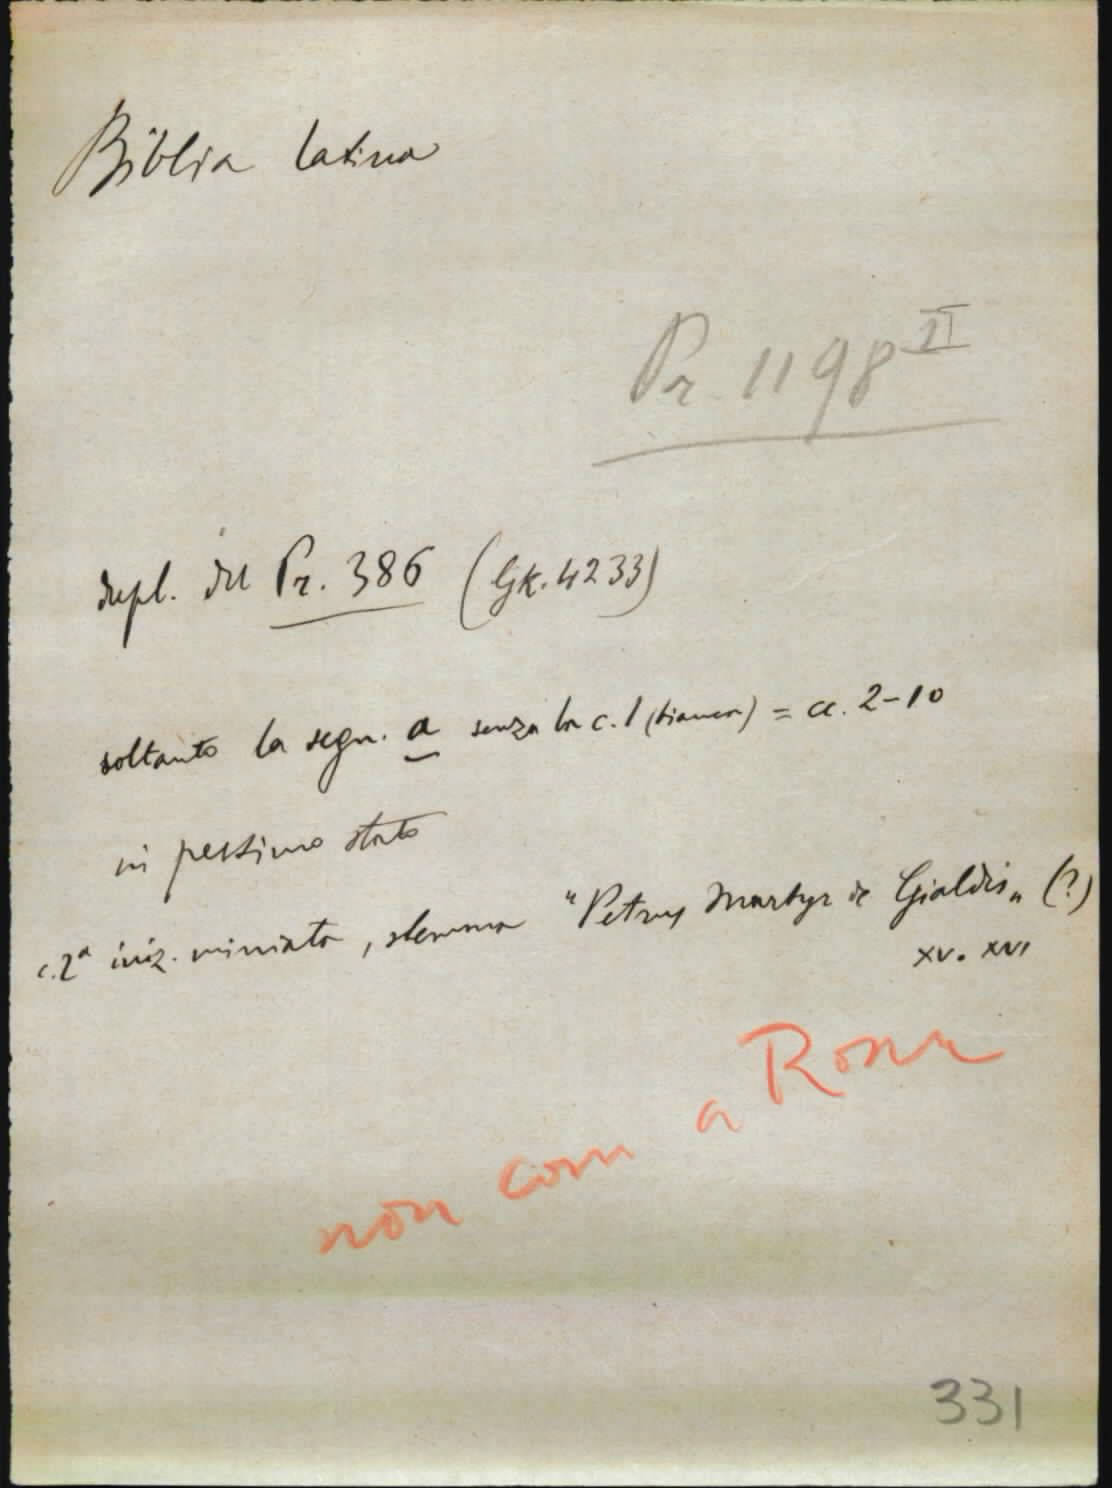 Biblia latina
Pr. 1198 II
dupl. del Pr. 386 (Gk. 4233)
soltanto la segn. a senza la c. 1 (bianca) = cc. 2-10
in pessimo stato
c. 2ª iniz. miniata, stemma "Petrus Martyr de Gialdis" (?)
XV. XVI
non com a Roma
331